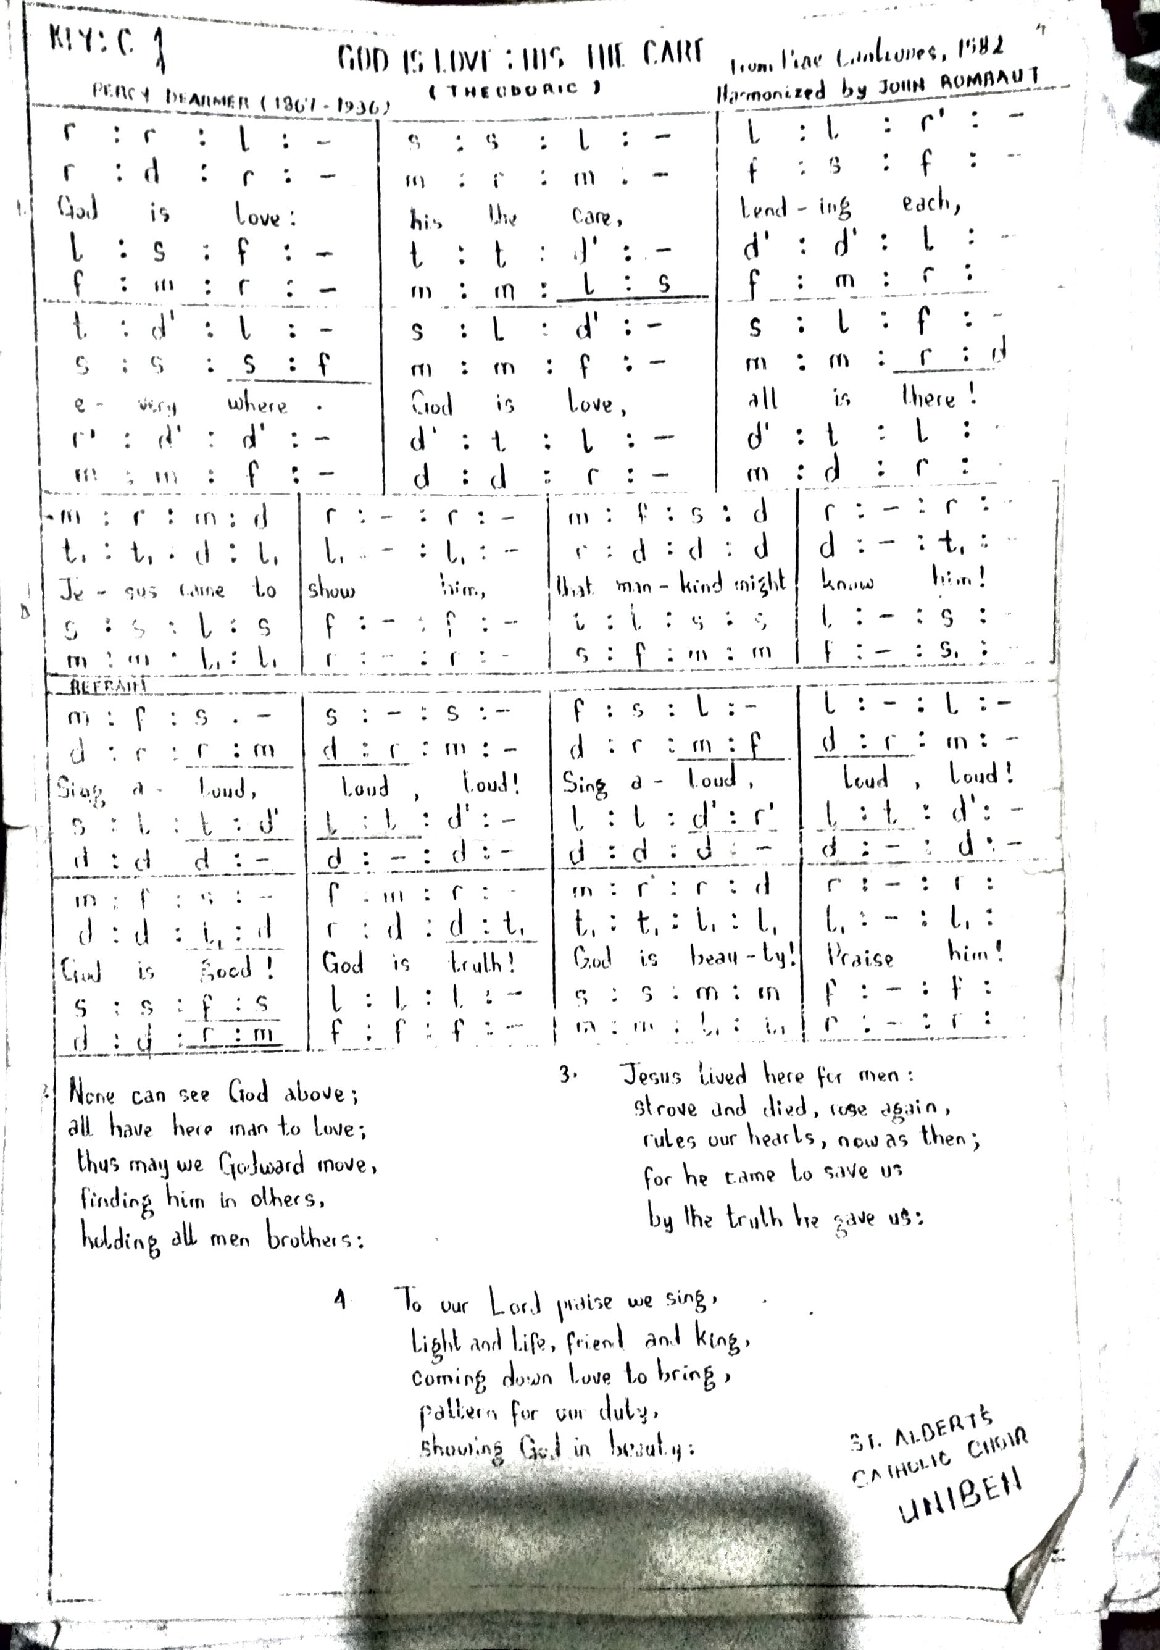 KEY: C
GOD IS LOVE: HIS THE CARE
from Piae Cantiones, 1582
PERCY DEARMER (1867-1936)
(THEODORIC)
Harmonized by JOHN ROMBAUT
r : r : l : - | s : s : l : - | l : l : r' : -
r : d : r : - | m : r : m : - | f : s : f : -
1. God is love: his the care, lend-ing each,
l : s : f : - | t : t : d' : - | d' : d' : l : -
f : m : r : - | m : m : l : s | f : m : r :
t : d' : l : - | s : l : d' : - | s : l : f : -
s : s : s : f | m : m : f : - | m : m : r : d
e-very where. God is love, all is there!
r' : d' : d' : - | d' : t : l : - | d' : t : l :
m : m : f : - | d : d : r : - | m : d : r :
m : r : m : d | r : - : r : - | m : f : s : d | r : - : r : -
t, : t, : d : l, | l, : - : l, : - | r : d : d : d | d : - : t, :
Je-sus came to show him, that man-kind might know him!
s : s : l : s | f : - : f : - | : l : s : s | l : - : s :
m : m : l, : l, | r : - : r : - | s : f : m : m | f : - : s, :
REFRAIN
m : f : s : - | s : - : s : - | f : s : l : - | l : - : l : -
d : r : r : m | d : r : m : - | d : r : m : f | d : r : m : -
Sing a-loud, loud, loud! Sing a-loud, loud, loud!
s : l : t : d' | l : t : d' : - | l : l : d' : r' | l : t : d' : -
d : d d : - | d : - : d : - | d : d : d : - | d : - : d : -
m : f : s : - | f : m : r : - | m : r : r : d | r : - : r :
d : d : l, : d | r : d : d : t, | t, : t, : l, : l, | l, : - : l, :
God is Good! God is truth! God is beau-ty! Praise him!
s : s : f : s | l : l : l : - | s : s : m : m | f : - : f :
d : d : r : m | f : f : f : - | m : m : l, : l, | r : - : r :
2. None can see God above;
all have here man to love;
thus may we Godward move,
finding him in others,
holding all men brothers:
3. Jesus lived here for men:
strove and died, rose again,
rules our hearts, now as then;
for he came to save us
by the truth he gave us:
4 To our Lord praise we sing,
light and life, friend and king,
coming down love to bring,
pattern for our duty,
showing God in beauty:
ST. ALBERT'S
CATHOLIC CHOIR
UNIBEN